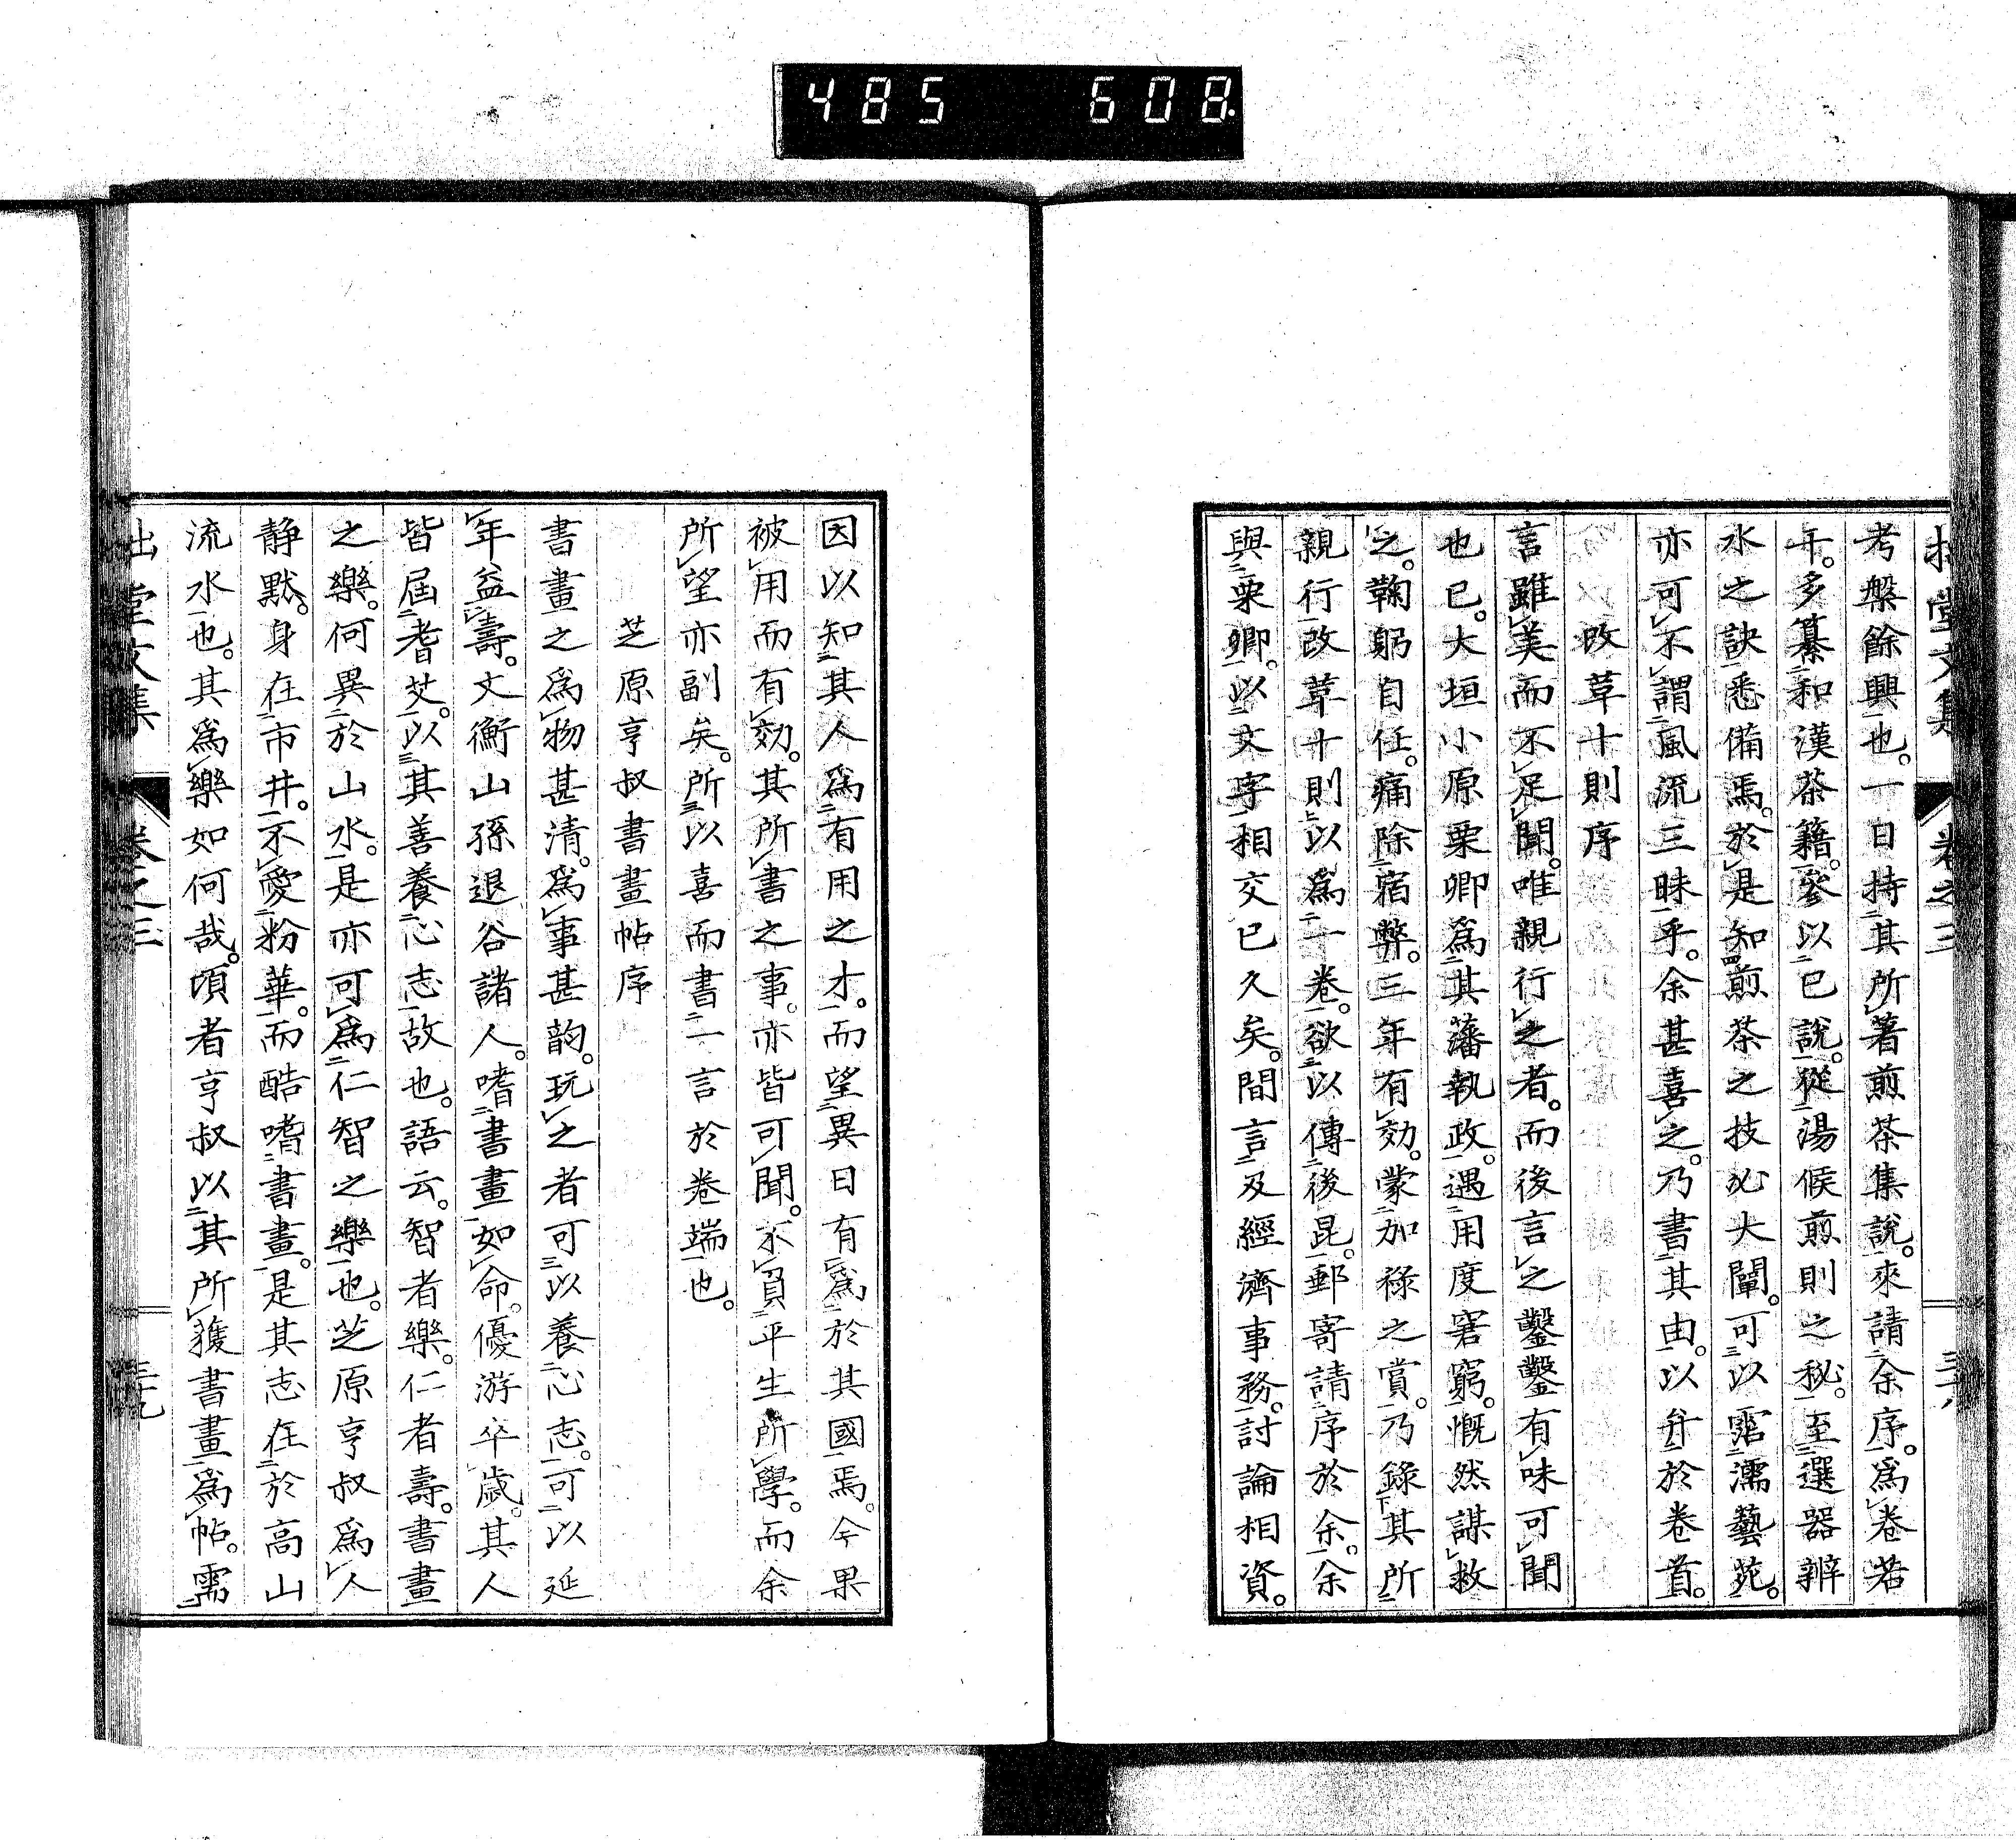 485 608.
拙堂文集 卷之三 三十八
考槃餘興也。一日持其所著煎茶集說。來請余序。爲卷若
干。多纂和漢茶籍。參以已說。從湯候煎則之秘。至選器辨
水之訣悉備焉。於是知煎茶之技必大闡。可以霑濡藝苑。
亦可不謂風流三昧乎。余甚喜之。乃書其由。以弁於卷首。
改革十則序
言雖美而不足聞。唯親行之者。而後言之鑿鑿有味可聞
也已。大垣小原栗卿爲其藩執政。遇用度窘窮。慨然謀救
之。鞠躬自任。痛除宿弊。三年有効。蒙加祿之賞。乃錄其所
親行改革十則以爲一卷。欲以傳後昆。郵寄請序於余。余
與栗卿。以文字相交已久矣。間言及經濟事務。討論相資。
因以知其人爲有用之才。而望異日有爲於其國焉。今果
被用而有効。其所書之事。亦皆可聞。不負平生所學。而余
所望亦副矣。所以喜而書一言於卷端也。
芝原亨叔書畫帖序
書畫之爲物甚清。爲事甚韵。玩之者可以養心志。可以延
年益壽。文衡山孫退谷諸人。嗜書畫如命。優游卒歲。其人
皆屆耆艾。以其善養心志故也。語云。智者樂。仁者壽。書畫
之樂。何異於山水。是亦可爲仁智之樂也。芝原亨叔爲人
静默。身在市井。不愛粉華。而酷嗜書畫。是其志在於高山
流水也。其爲樂如何哉。頃者亨叔以其所獲書畫爲帖。需
拙堂文集 卷之三 三十九